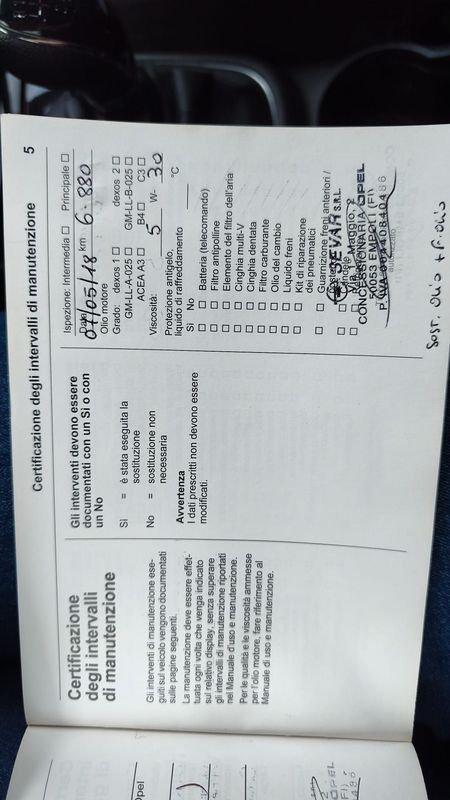 Certificazione degli intervalli di manutenzione 5
Certificazione
degli intervalli
di manutenzione
Gli interventi di manutenzione ese-
guiti sul veicolo vengono documentati
sulle pagine seguenti.
La manutenzione deve essere effet-
tuata ogni volta che venga indicato
sul relativo display, senza superare
gli intervalli di manutenzione riportati
nel Manuale d'uso e manutenzione.
Per le qualità e le viscosità ammesse
per l'olio motore, fare riferimento al
Manuale di uso e manutenzione.
Gli interventi devono essere
documentati con un Sì o con
un No
Sì = è stata eseguita la
sostituzione
No = sostituzione non
necessaria
Avvertenza
I dati prescritti non devono essere
modificati.
Ispezione: Intermedia □ Principale □
Data 07/05/18 km 6.880
Olio motore
Grado: dexos 1 □ dexos 2 □
GM-LL-A-025 □ GM-LL-B-025 □
ACEA A3 □ B4 □ C3 □
Viscosità: 5 W- 30
Protezione antigelo
liquido di raffreddamento °C
Sì No
□ □ Batteria (telecomando)
□ □ Filtro antipolline
□ □ Elemento del filtro dell'aria
□ □ Cinghia multi-V
□ □ Cinghia dentata
□ □ Filtro carburante
□ □ Olio del cambio
□ □ Liquido freni
□ □ Kit di riparazione
dei pneumatici
□ □ Guarnizione freni anteriori /
SEVAR S.R.L.
Via 1° Maggio, 2
CONCESSIONARIA OPEL
50053 EMPOLI (FI)
P. IVA
Sost. Olio + F. Olio
Opel
OPEL